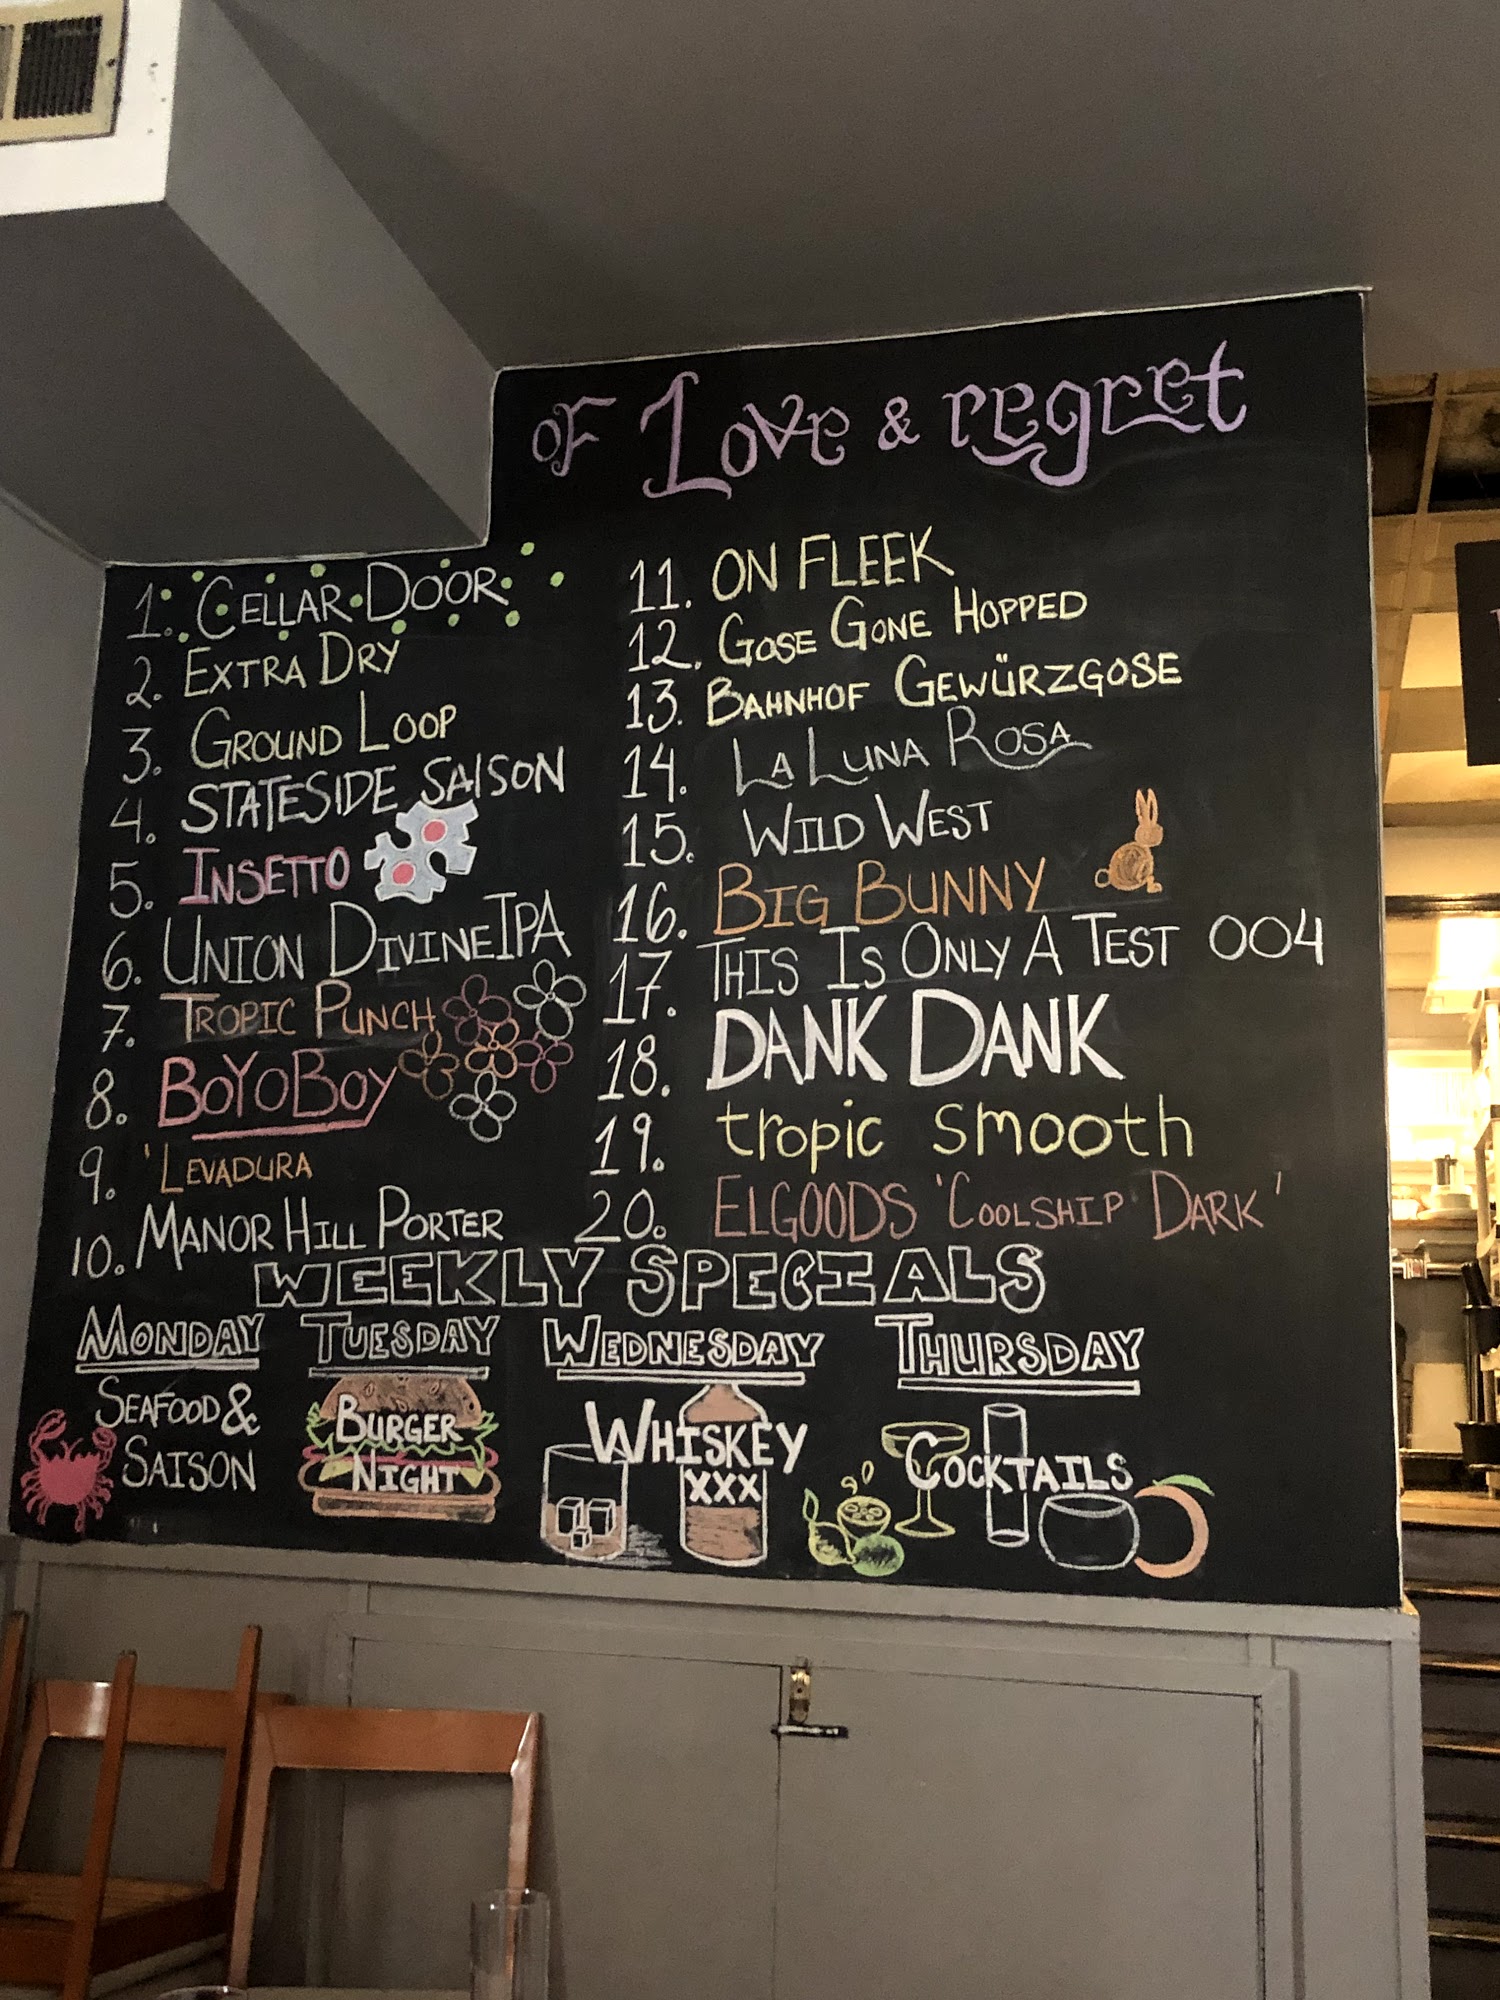 OF Love & regret
1. CELLAR DOOR
2. EXTRA DRY
3. GROUND LOOP
4. STATESIDE SAISON
5. INSETTO
6. UNION DIVINE IPA
7. TROPIC PUNCH
8. BOYOBOY
9. 'LEVADURA
10. MANOR HILL PORTER
11. ON FLEEK
12. GOSE GONE HOPPED
13. BAHNHOF GEWÜRZGOSE
14. LA LUNA ROSA
15. WILD WEST
16. BIG BUNNY
17. THIS IS ONLY A TEST 004
18. DANK DANK
19. tropic smooth
20. ELGOODS 'COOLSHIP DARK'
WEEKLY SPECIALS
MONDAY
SEAFOOD &
SAISON
TUESDAY
BURGER
NIGHT
WEDNESDAY
WHISKEY
XXX
THURSDAY
COCKTAILS